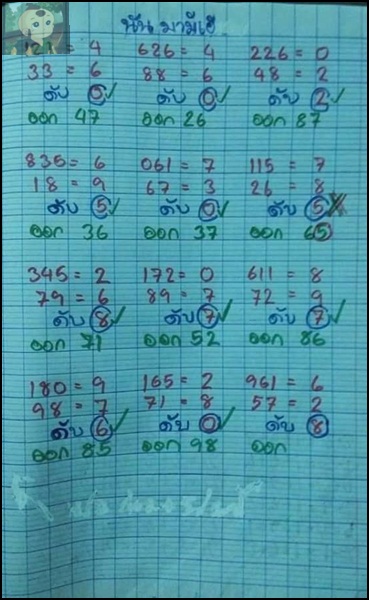 ฟัน มามีเฮ
121 = 4 626 = 4 226 = 0
33 = 6 88 = 6 48 = 2
ดับ 0 ✓ ดับ 0 ✓ ดับ 2 ✓
ออก 47 ออก 26 ออก 87
835 = 6 061 = 7 115 = 7
18 = 9 67 = 3 26 = 8
ดับ 5 ✓ ดับ 0 ✓ ดับ 5 X
ออก 36 ออก 37 ออก 65
345 = 2 172 = 0 611 = 8
79 = 6 89 = 7 72 = 9
ดับ 8 ✓ ดับ 7 ✓ ดับ 7 ✓
ออก 71 ออก 52 ออก 86
180 = 9 165 = 2 961 = 6
98 = 7 71 = 8 57 = 2
ดับ 6 ✓ ดับ 0 ✓ ดับ 8
ออก 85 ออก 98 ออก